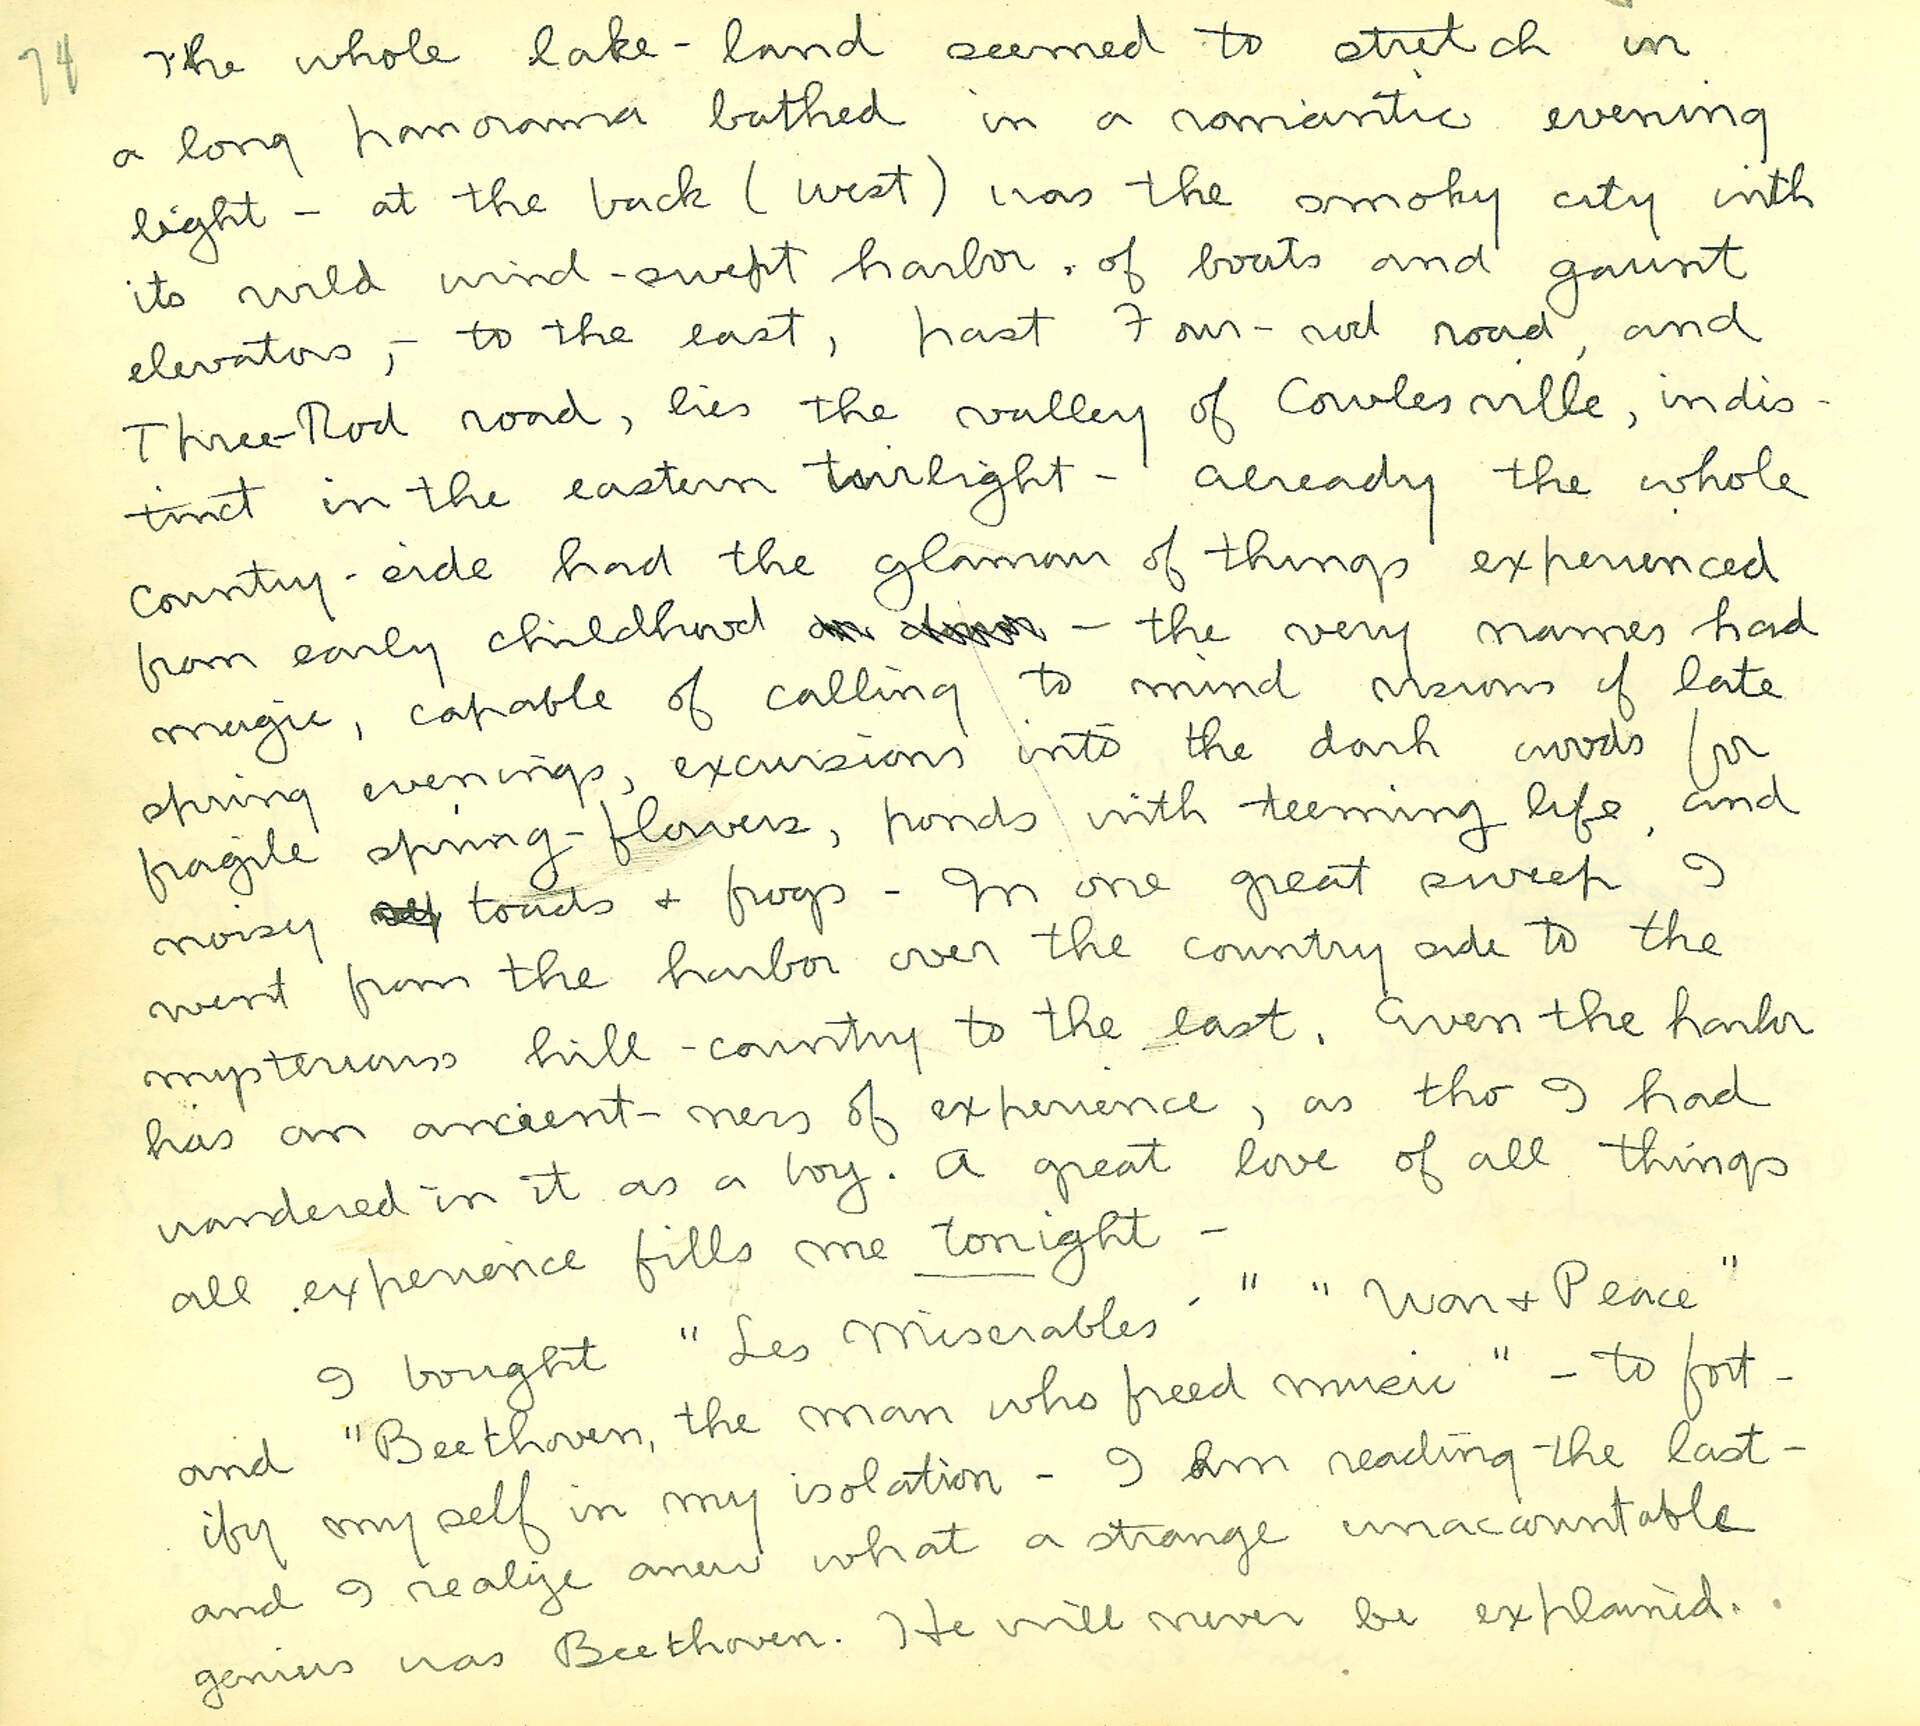 74 The whole lake-land seemed to stretch in
a long panorama bathed in a romantic evening
light - at the back (west) was the smoky city with
its wild wind-swept harbor. of boats and gaunt
elevators, - to the east, past Four-rod road, and
Three-Rod road, lies the valley of Cowlesville, indis-
tinct in the eastern twilight - already the whole
country-side had the glamour of things experienced
from early childhood - the very names had
magic, capable of calling to mind visions of late
spring evenings, excursions into the dark woods for
fragile spring-flowers, ponds with teeming life, and
noisy toads + frogs - In one great sweep I
went from the harbor over the country side to the
mysterious hill-country to the east. Even the harbor
has an ancient-ness of experience, as tho I had
wandered in it as a boy. A great love of all things
all experience fills me tonight -
I bought "Les Miserables -" "War + Peace"
and "Beethoven, the man who freed music" - to fort-
ify myself in my isolation - I am reading the last -
and I realize anew what a strange unaccountable
genius was Beethoven. He will never be explained.